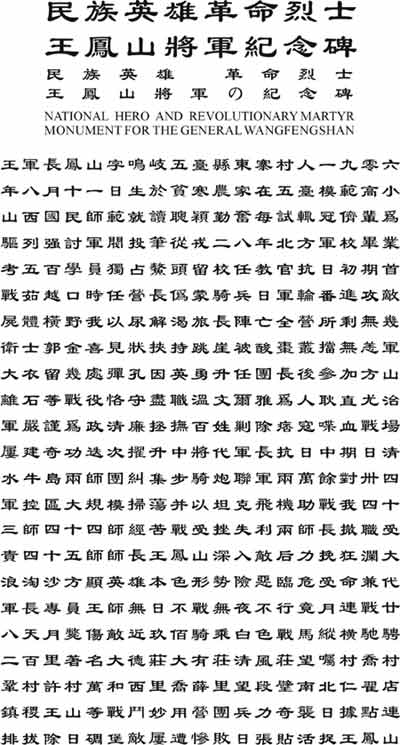 民族英雄革命烈士
王鳳山將軍紀念碑
民族英雄 革命烈士
王鳳山將軍の紀念碑
NATIONAL HERO AND REVOLUTIONARY MARTYR
MONUMENT FOR THE GENERAL WANGFENGSHAN
王軍長鳳山字鳴岐五臺縣東寨村人一九零六
年八月十一日生於貧寒農家在五臺模範高小
山西國民師範就讀聰穎勤奮每試輒冠儕輩為
驅列强討軍閥投筆從戎二八年北方軍校畢業
考五百學員獨占鰲頭留校任教官抗日初期首
戰茹越口時任營長偽蒙騎兵日軍輪番進攻敵
屍體橫野我以尿解渴旅長陣亡全營所剩無幾
衛士郭金喜見狀扶持跳崖被酸棗叢擋無恙軍
大衣留幾處彈孔因英勇升任團長後參加方山
離石等戰役恪守盡職溫文爾雅爲人耿直尤治
軍嚴謹爲政清廉拯撫百姓剿除痞寇喋血戰場
屢建奇功迭次擢升中將代軍長抗日中期日清
水牛島兩師團糾集步騎炮聯軍兩萬餘對卅四
軍控區大規模掃蕩并以坦克飛機助戰我四十
三師四十四師經苦戰受挫失利兩師長撤職受
責四十五師師長王鳳山深入敵后力挽狂瀾大
浪淘沙方顯英雄本色形勢險惡臨危受命兼代
軍長專員王師無日不戰無夜不行竟月連戰廿
八天月斃傷敵近玖佰騎乘白色戰馬縱橫馳騁
二百里著名大德莊大有莊清風莊望囑村喬村
鞏村許村萬和西里喬薛里望段壁南北仁翟店
鎮稷王山等戰鬥妙用營團兵力奇襲日據點連
排拔除日碉堡敵屢遭慘敗日張貼活捉王鳳山